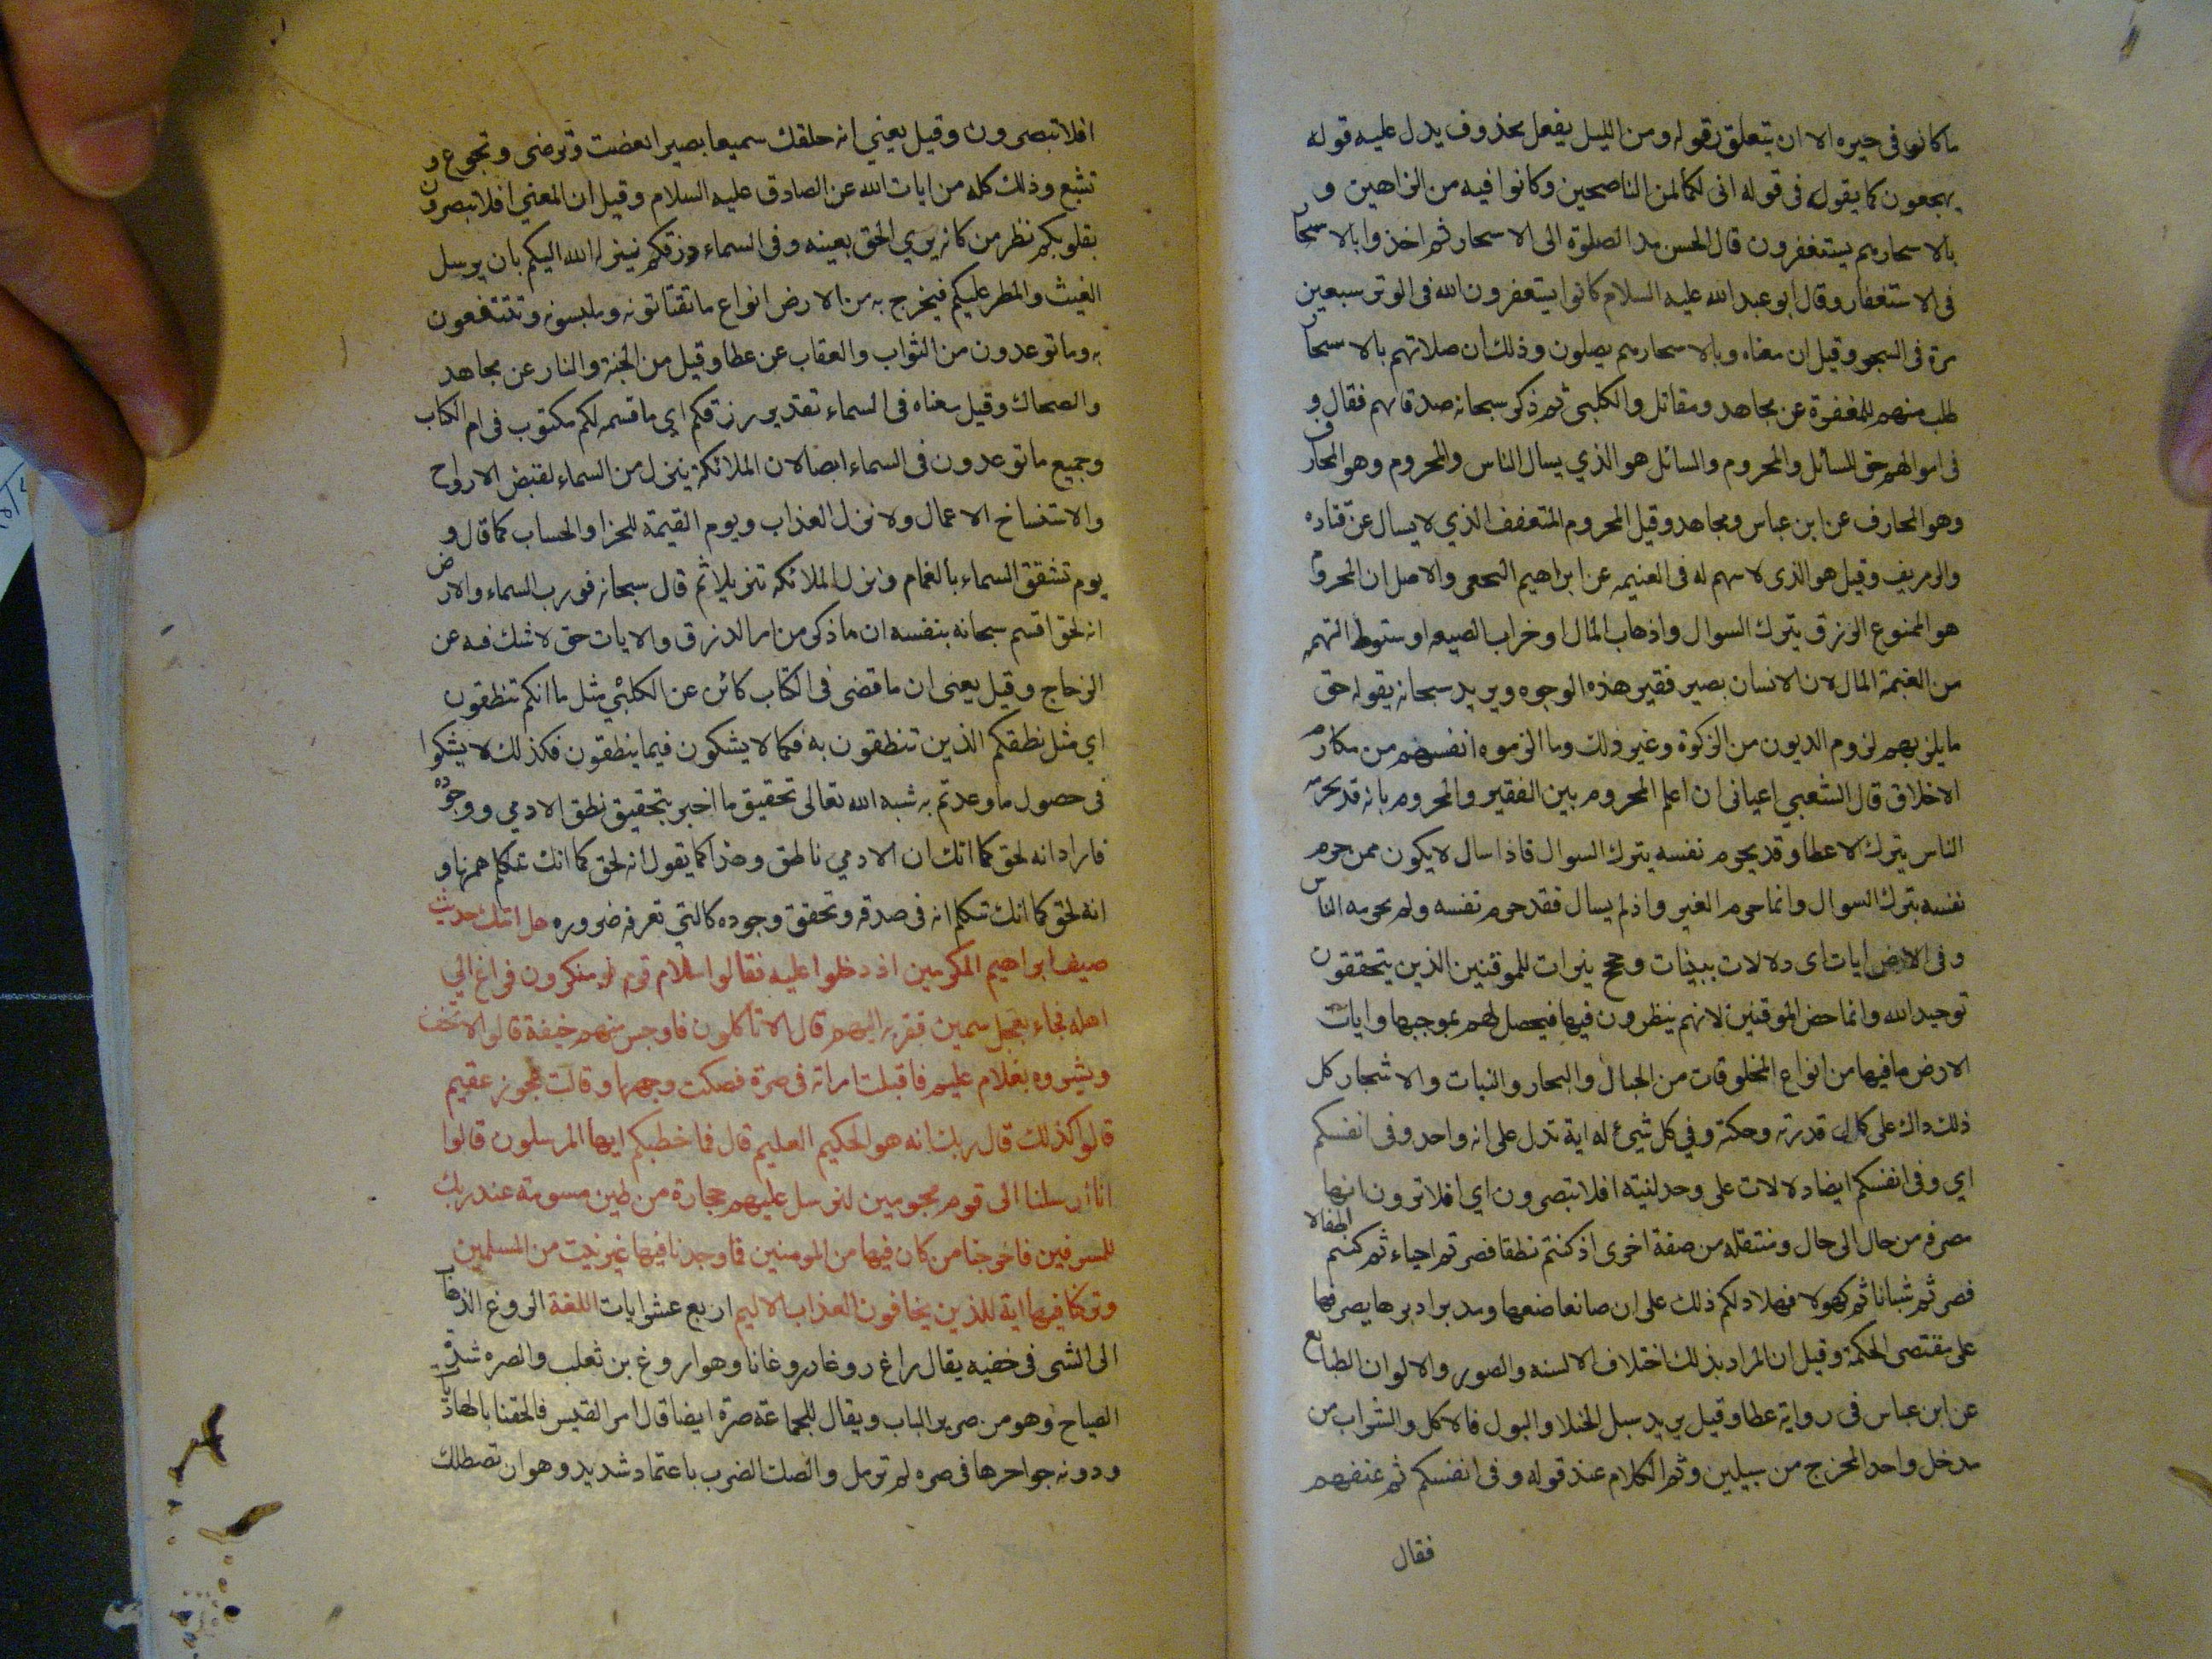 ما كانوا فى حيره الا ان يتعلق قوله ومن الليل يفعل محذوف يدل عليه قوله
يهجعون كما يقول فى قوله انى لكما لمن الناصحين وكانوا فيه من الزاهين و
بالاسحار هم يستغفرون قال الحسن مد الصلوة الى الاسحار ثم اخذوا بالاسحار
فى الاستغفار وقال ابو عبد الله عليه السلام كانوا يستغفرون الله فى الوتر سبعين
مرة فى السحر وقيل ان معناه وبالاسحار هم يصلون وذلك ان صلاتهم بالاسحار
طلب منهم للمغفرة عن مجاهد ومقاتل والكلبى ثم ذكر سبحانه صدقاتهم فقال و
فى اموالهم حق للسائل والمحروم والسائل هو الذي يسال الناس والمحروم وهو المحارف
وهو المحارف عن ابن عباس ومجاهد وقيل المحروم المتعفف الذي لا يسال عن قتاده
والزهريف وقيل هو الذى لا سهم له فى الغنيمه عن ابراهيم النخعى والاصل ان المحروم
هو الممنوع الرزق بترك السوال واذهاب المال او خراب الضيعه او سقوط السهم
من الغنيمة المال لان الانسان يصير فقير هذه الوجوه ويريد سبحانه بقوله حق
ما يلزمهم لزوم الديون من الزكوة وغير ذلك وما الزموه انفسهم من مكارم
الاخلاق قال الشعبي اعيانى ان اعلم المحروم بين الفقير والمحروم بانه قد يحرمه
الناس بترك الاعطا وقد يحرم نفسه بترك السوال فاذا سال لا يكون ممن حرم
نفسه بترك السوال وانما حرم الغير واذ لم يسال فقد حرم نفسه ولم يحرمه الناس
وفى الارض ايات اى دلالات بينات وحجج نيرات للموقنين الذين يتحققون
توحيد الله وانما خص الموقنين لانهم ينظرون فيها فيحصل لهم بموجبها وايات
الارض ما فيها من انواع المخلوقات من الجبال والبحار والنبات والاشجار كل
ذلك دال على كمال قدرته وحكمته وفي كل شيء له اية تدل على انه واحد وفى انفسكم
اي وفى انفسكم ايضا دلالات على وحدانيته افلا تبصرون اي افلا ترون انها
مصرفه من حال الى حال ومنتقله من صفة اخرى اذ كنتم نطفا فصرتم احياء ثم كنتم اطفالا
فصرتم شبانا ثم كهولا فهلا دلكم ذلك على ان صانعا صنعها ومدبرا دبرها يصرفها
على مقتضى الحكمة وقيل ان المراد بذلك اختلاف الالسنه والصور والالوان الطبايع
عن ابن عباس فى رواية عطا وقيل يريد سبل الخلا والبول فالاكل والشراب من
مدخل واحد المخرج من سبيلين وثم الكلام عند قوله وفى انفسكم ثم عنفهم
فقال
افلا تبصرون وقيل يعني انه خلقك سميعا بصيرا تغضب وترضى وتجوع و
تشبع وذلك كله من ايات الله عن الصادق عليه السلام وقيل ان المعني افلا تبصرون
بقلوبكم نظر من كانه يري الحق بعينه وفى السماء رزقكم ينزله الله اليكم بان يرسل
الغيث والمطر عليكم فيخرج به من الارض انواع ما تقتاتونه وتلبسونه وتنتفعون
به وما توعدون من الثواب والعقاب عن عطا وقيل من الجنة والنار عن مجاهد
والضحاك وقيل معناه فى السماء تقدير رزقكم اي ما قسمه لكم مكتوب فى ام الكتاب
وجميع ما توعدون فى السماء ايضا لان الملائكة ينزل من السماء لقبض الارواح
والاستنساخ الاعمال ولانزل العذاب ويوم القيمة للجزا والحساب كما قال و
يوم تشقق السماء بالغمام ونزل الملائكه تنزيلا ثم قال سبحانه فورب السماء والارض
انه لحق اقسم سبحانه بنفسه ان ما ذكر من امر الرزق والايات حق لا شك فيه عن
الزجاج وقيل يعنى ان ما قضى فى الكتاب كائن عن الكلبي مثل ما انكم تنطقون
اي مثل نطقكم الذين تنطقون به فكما لا يشكون فيما ينطقون فكذلك لا يشكوا
فى حصول ما وعدتم به شبه الله تعالى تحقيق ما اخبر بتحقيق نطق الادمي ووجوده
فاراد انه لحق كما انك ان الادمي ناطق وهذا كما يقول انه لحق كما انك تتكلم همنا و
انه لحق كما انك تتكلم انه فى صدقه وتحقق وجوده كالتي تعرفه ضروره هل اتىك حديث
ضيف ابراهيم المكرمين اذ دخلوا عليه فقالوا سلام قوم منكرون فراغ الي
اهله فجاء بعجل سمين فقربه اليهم قال الا تاكلون فاوجس منهم خيفة قالوا لا تخف
وبشروه بغلام عليم فاقبلت امراته فى صرة فصكت وجهها وقالت عجوز عقيم
قالوا كذلك قال ربك انه هو الحكيم العليم قال فما خطبكم ايها المرسلون قالوا
انا ارسلنا الى قوم مجرمين لنرسل عليهم حجارة من طين مسومة عند ربك
للمسرفين فاخرجنا من كان فيها من المومنين فما وجدنا فيها غير بيت من المسلمين
وتركنا فيها اية للذين يخافون العذاب الاليم اربع عشر ايات اللغة الروغ الذهاب
الى الشى فى خفيه يقال راغ روغا وروغانا وهو اروغ بن ثعلب والصره شدة
الصياح وهو من صرير الباب ويقال للجماعة صرة ايضا قال امر القيس فالحقنا بالهاديات
ودونه جواحرها فى صره لم تزمل والصك الضرب باعتماد شديد وهو ان تصطك